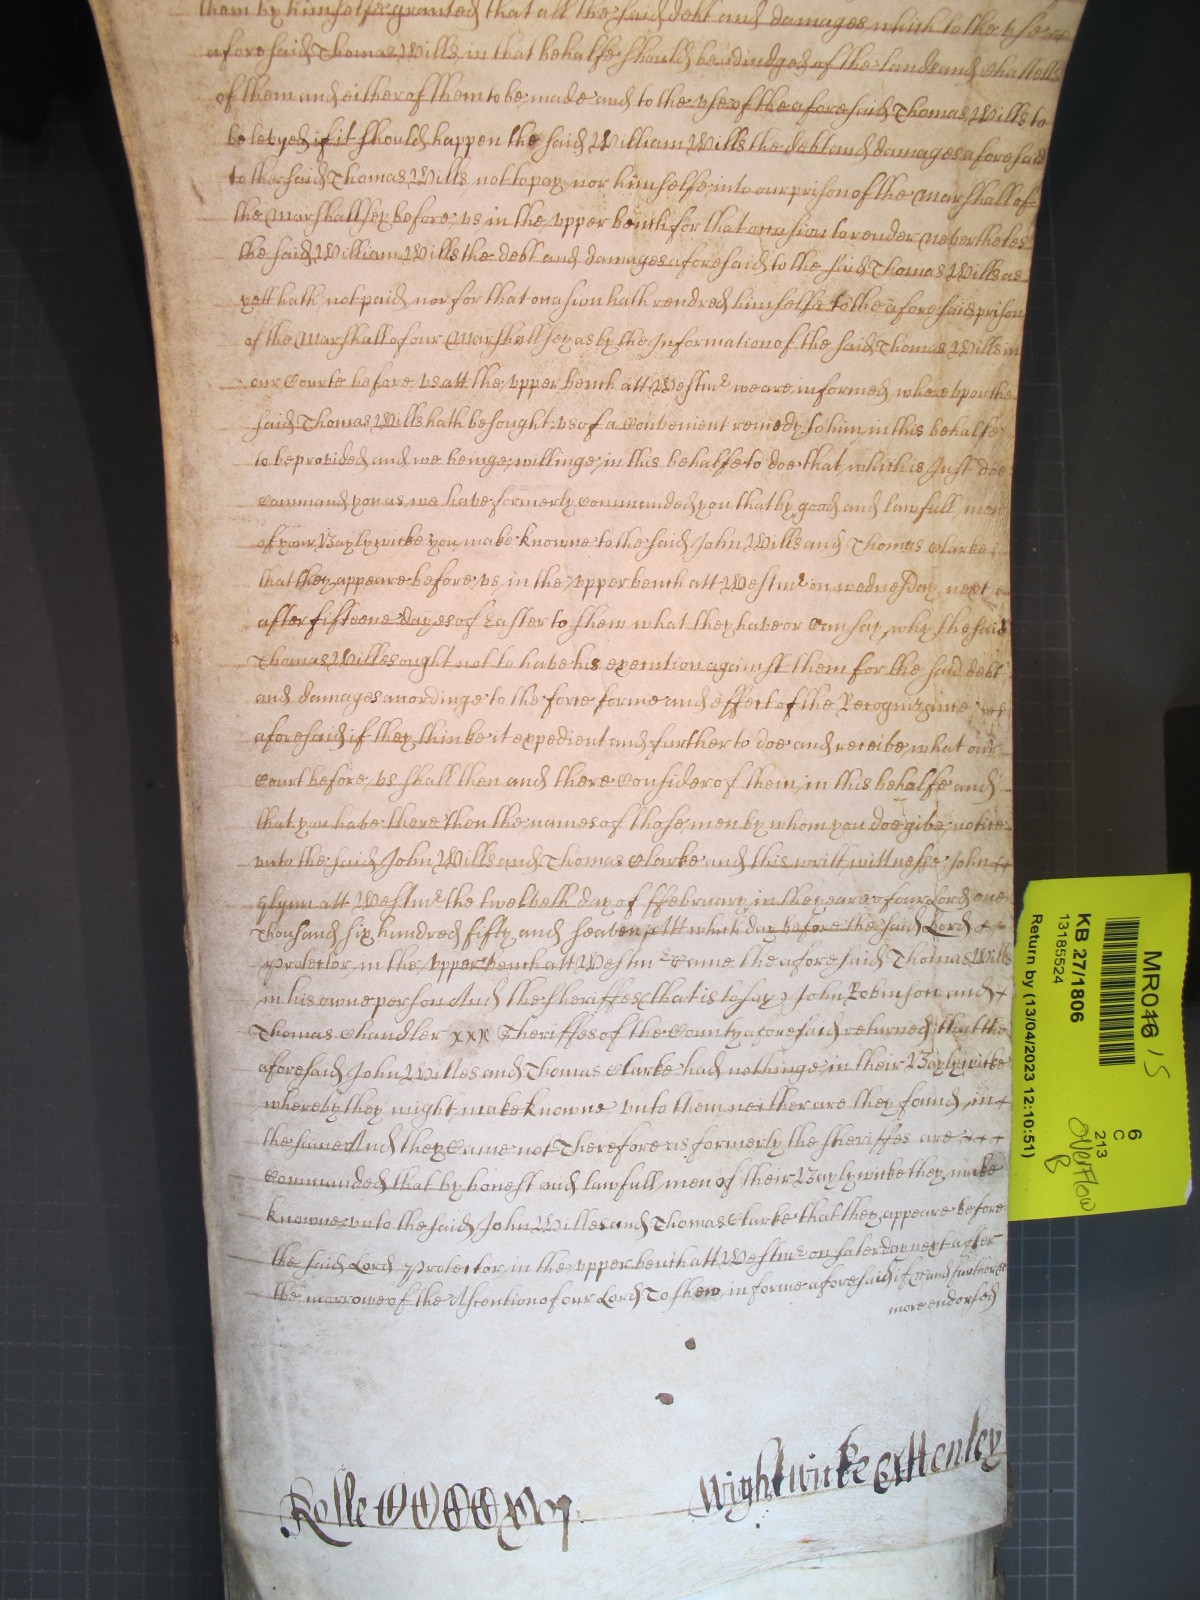 them by himselfe granted that all the said debt and damages which to the vse
aforesaid Thomas Wills in that behalfe should be adiudged of the lands and Chattells
of them and either of them to be made and to the vse of the aforesaid Thomas Wills to
be levyed if it should happen the said William Wills the debt and damages aforesaid
to the said Thomas Wills not to pay nor himselfe into our prison of the Marshall of
the Marshallsey before vs in the vpper bench for that occasion to render neverthelesse
the said William Wills the debt and damages aforesaid to the said Thomas Wills as
yett hath not paid nor for that occasion hath rendred himselfe to the aforesaid prison
of the Marshall of our Marshallsey as by the Informacion of the said Thomas Wills in
our Courte before vs att the vpper bench att Westmr we are informed whereupon the
said Thomas Wills hath besought vs of a Convenient remedy to him in this behalfe
to be provided and we beinge willinge in this behalfe to doe that which is Just doe
Command you as we have formerly Commanded you that by good and lawfull men
of your Baylywicke you make knowne to the said John Wills and Thomas Clarke
that they appeare before vs in the vpper bench att Westmr on wednesday next
after fifteene dayes of Easter to shew what they have or Can say why the said
Thomas Wills ought not to have his execution against them for the said debt
and damages accordinge to the force forme and effect of the Recognizance
aforesaid if they thinke it expedient and further to doe and receive what our
Court before vs shall then and there Consider of them in this behalfe and
that you have there then the names of those men by whom you doe give notice
vnto the said John Wills and Thomas Clarke and this writt wittnesse John
glynn att Westmr the twelveth day of ffebruary in the yeare of our Lord one
Thousand six hundred fifty and seaven Att which day before the said Lord
Protector in the vpper bench att Westmr Came the aforesaid Thomas Wills
in his owne person And the Sheriffes (that is to say) John Robinson and
Thomas Chandler xxx Sheriffes of the County aforesaid returned that the
aforesaid John Willes and Thomas Clarke had nothinge in their Baylywicke
whereby they might make knowne vnto them neither are they found in
the same And they Came not Therefore as formerly the Sheriffes are
Commanded that by honest and lawfull men of their Baylywicke they make
knowne vnto the said John Willes and Thomas Clarke that they appeare before
the said Lord Protector in the vpper bench att Westmr on Saterday next after
the morrowe of the Ascention of our Lord To shew in forme aforesaid if &c and further &c
more endorsed
Wightwicke & Henley
Rolle CCCCxvj
MR016 15
KB 27/1806
13185524
Return by (13/04/2023 12:10:51)
6
C
213
Overflow
B